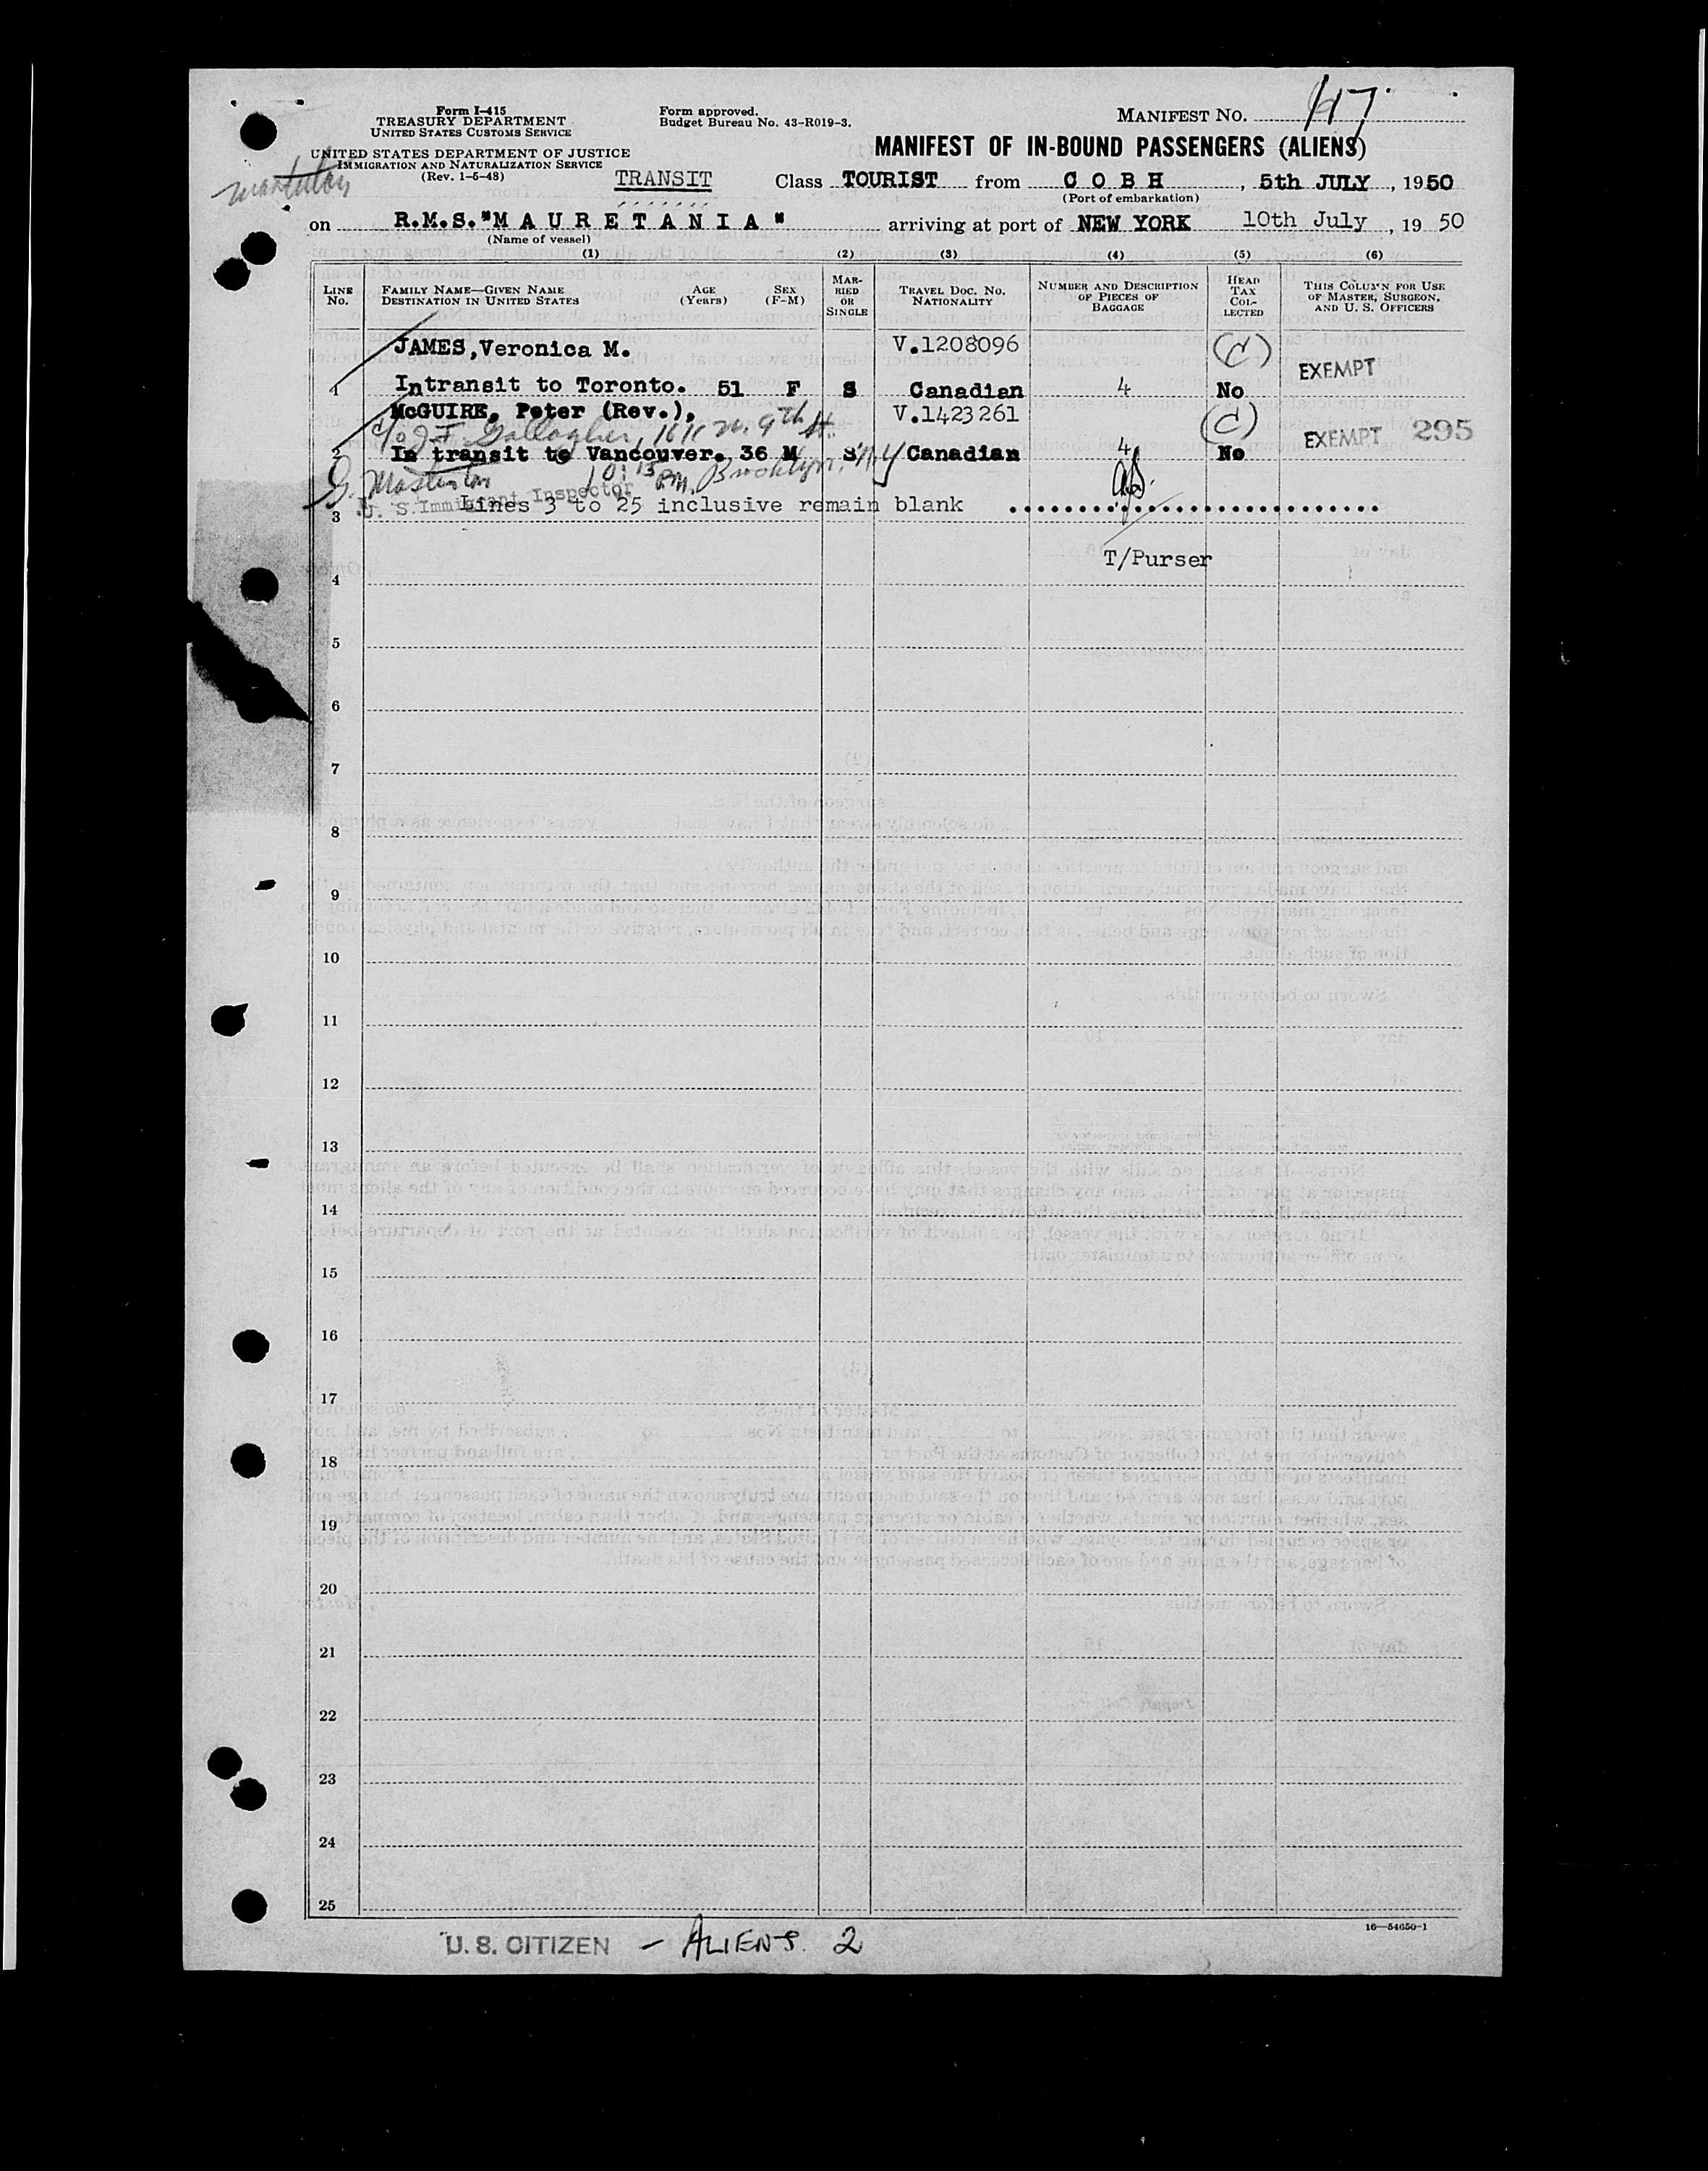 Form I-415
TREASURY DEPARTMENT
UNITED STATES CUSTOMS SERVICE
Form approved.
Budget Bureau No. 43-R019-3.
MANIFEST NO. 117
UNITED STATES DEPARTMENT OF JUSTICE
IMMIGRATION AND NATURALIZATION SERVICE
(Rev. 1-6-48)
MANIFEST OF IN-BOUND PASSENGERS (ALIENS)
TRANSIT Class TOURIST from C O B H, 5th JULY, 1950
(Port of embarkation)
on R.M.S."M A U R E T A N I A" arriving at port of NEW YORK 10th July, 19 50
(Name of vessel)
(1) (2) (3) (4) (5) (6)
LINE No. FAMILY NAME—GIVEN NAME DESTINATION IN UNITED STATES AGE (Years) SEX (F-M) MARRIED OR SINGLE TRAVEL DOC. No. NATIONALITY NUMBER AND DESCRIPTION OF PIECES OF BAGGAGE HEAD TAX COLLECTED THIS COLUMN FOR USE OF MASTER, SURGEON, AND U. S. OFFICERS
JAMES,Veronica M. V.1208096 (d) EXEMPT
1 Intransit to Toronto. 51 F S Canadian 4 No
McGUIRE, Peter (Rev.), V.1423261 (d) EXEMPT 295
c/o J F Gallagher, 9th St.
2 In transit to Vancouver. 36 M S Canadian 4 No
10:15 PM. Brooklyn, N.Y
U. S. Immigrant Inspector
3 Lines 3 to 25 inclusive remain blank ............................
T/Purser
4
5
6
7
8
9
10
11
12
13
14
15
16
17
18
19
20
21
22
23
24
25
16—54650-1
U. S. CITIZEN — ALIENS. 2